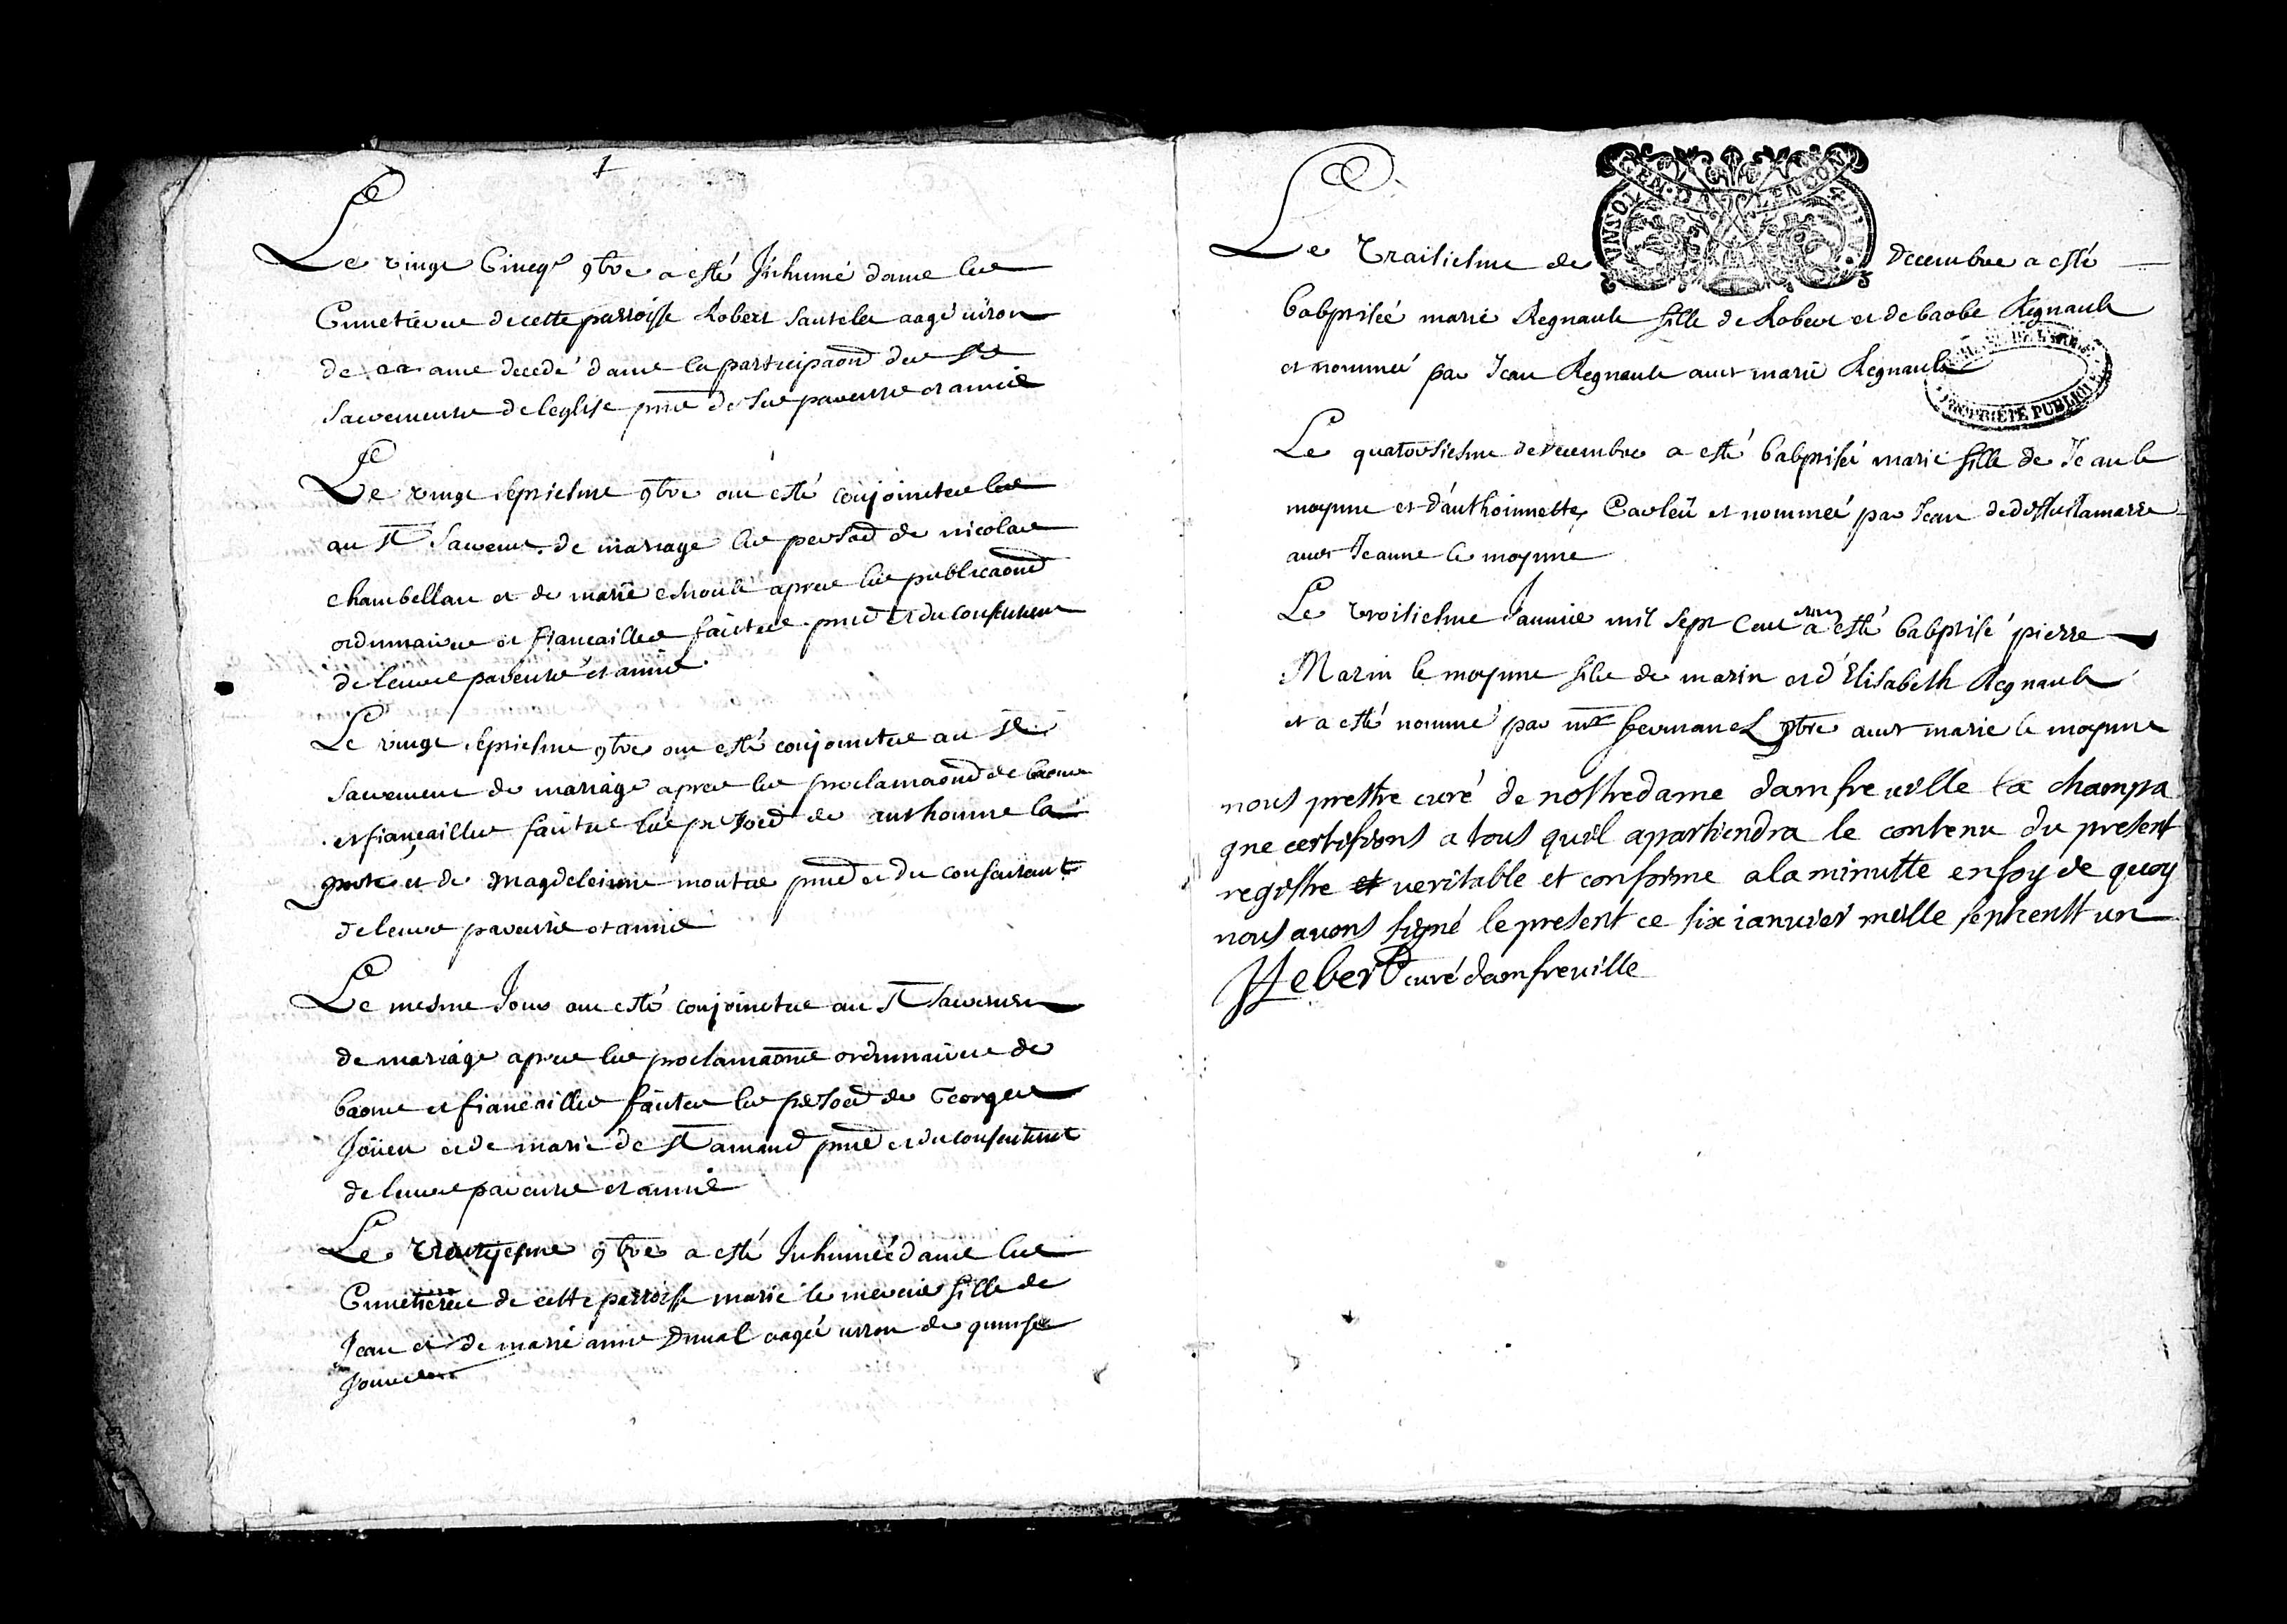 Le vingt Cincqe 9bre a esté Inhumé dans les
Cimetieres de cette parroisse Robert sautelet aagé uiron
de ans decedé dans la participaõn des Sts
Sacrements de leglise pnce de ses parents et amis
Le vingt septiesme 9bre ont esté conjoinctes les
au St Sacremt de mariage les persoes de nicolas
chambellan et de marie apres les publicaõns
ordinnaires et fiancailles faictes pnce et du consentemt
de leurs parents et amis
Le vingt septiesme 9bre ont esté conjoinctes au St
Sacrement de mariage apres les proclamaõns de bans
et fiançailles faictes les persoes de anthoinne la
et de Magdeleinne moutre pnce et du consentemt
de leurs parents et amis
Le mesme Jour ont esté conjoinctes au St Sacremen
de mariage apres les proclamaõns ordinnaires de
bans et fiancailles faictes les persoes de George
Joüen et de marie de St amand pnce et du consentemt
de leurs parents et amis
Le trentyesme 9bre a esté Inhumée dans les
Cimetieres de cette parroisse marie le mercier fille de
Jean et de marie anne Duual aagée uiron de quinse
Jours
Le Traisiesme de decembre a esté
babptisée marie Regnault fille de Robert et de barbe Regnault
et nommée par Jean Regnault auec marie Regnault
GEN. DALENCON
PROPRIÉTÉ PUBLIQUE
Le quatorsiesme de decembre a esté babptisée marie fille de Jean le
moynne et d'anthoinnette Carleü et nommée par Jean de dessuslamarre
auec Jeanne le moynne
Le troisiesme Januier mil sept Cent un a esté babptisé pierre
Marin le moynne fils de marin et d'Elisabeth Regnault
et a esté nommé par mre fernanel pbtre auec marie le moynne
nous prestre curé de nostredame damfreuille la champa
gne certifions a tous quil apartiendra le contenu du present
registre et veritable et conforme a la minutte en foy de quoy
nous auons signé le present ce six ianuier mille septcent un
Hebert curé damfreuille